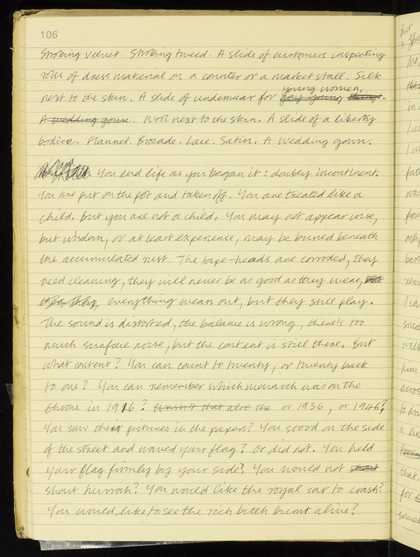 106
Stroking velvet. Stroking tweed. A slide of customers inspecting
rolls of dress material on a counter or a market stall. Silk
next to the skin. A slide of underwear for young women.
A wedding gown. Wool next to the skin. A slide of a liberty
bodice. Flannel. Brocade. Lace. Satin. A wedding gown.
You end life as you began it: doubly incontinent.
You are put on the pot and taken off. You are treated like a
child. But you are not a child. You may not appear wise,
but wisdom, or at least experience, may be buried beneath
the accumulated rust. The tape-heads are corroded, they
need cleaning, they will never be as good as they were,
everything wears out, but they still play.
The sound is distorted, the balance is wrong, there's too
much surface noise, but the content is still there. But
what content? You can count to twenty, or twenty back
to one? You can remember which monarch was on the
throne in 1916? Wasn't that also the or 1936, or 1946?
You saw their pictures in the papers? You stood on the side
of the street and waved your flag? Or did not. You held
your flag firmly by your side? You would not
shout hurrah? You would like the royal car to crash?
You would like to see the rich bitch burnt alive?